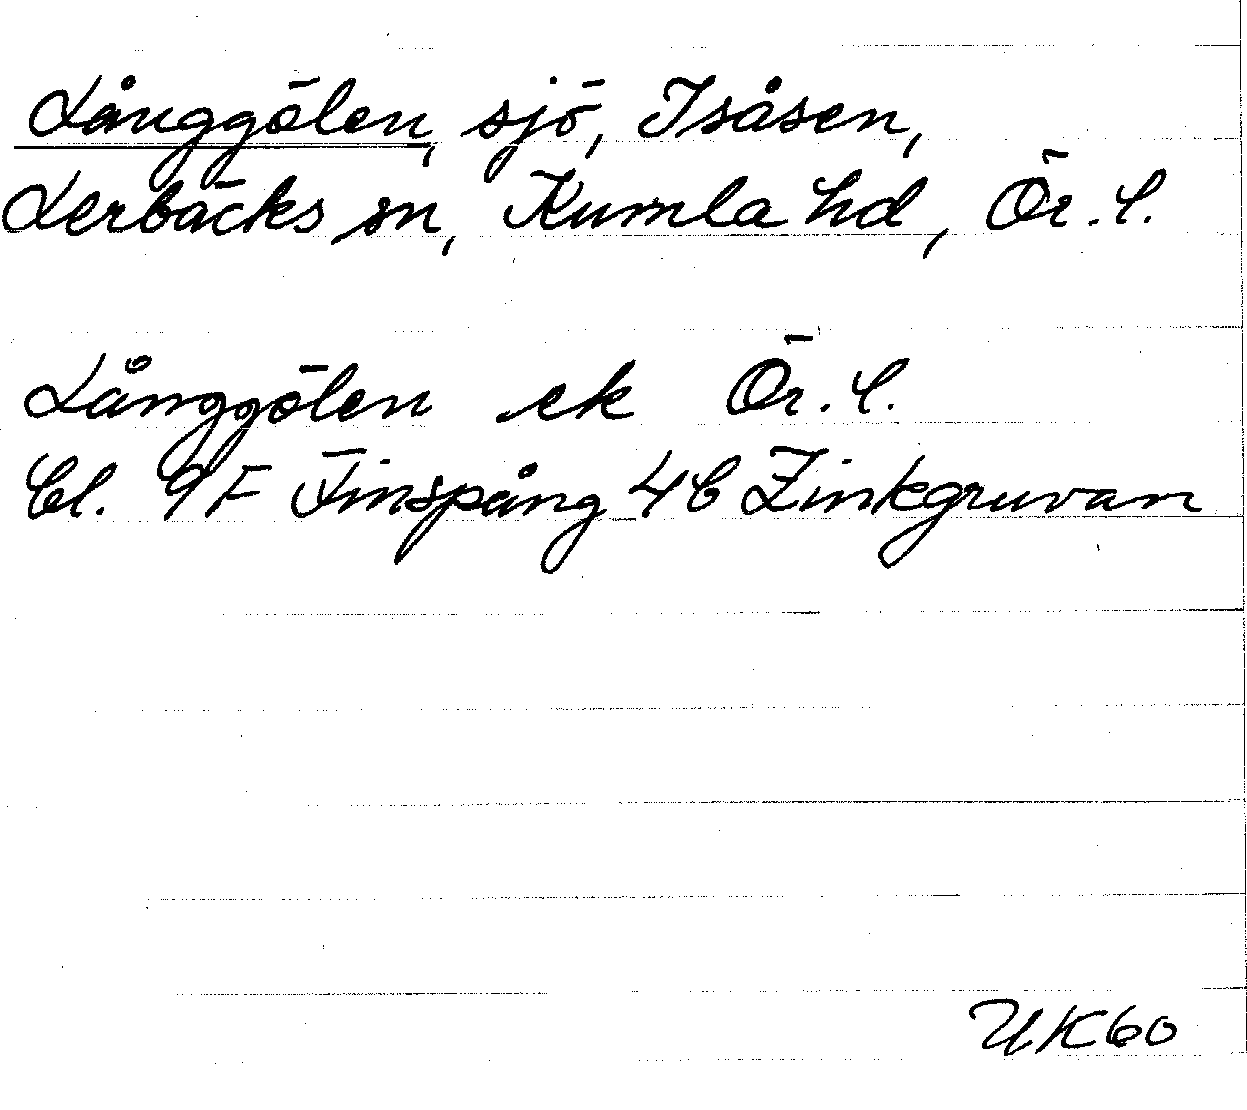 Långgölen, sjö, Isåsen,
Lerbäcks sn, Kumla hd, Ör. l.
Långgölen ek Ör. l.
bl. 9F Finspång 4b Zinkgruvan
UK60